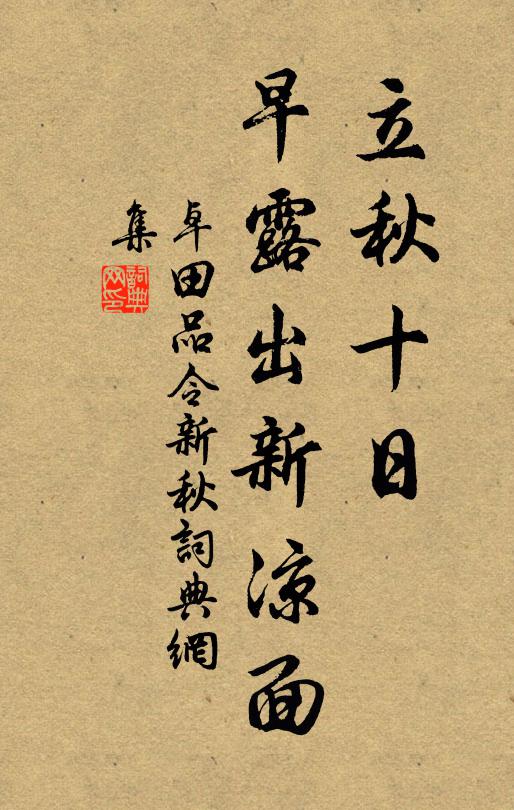 立秋十日
早露出新涼面
卓田品令新秋詞典網
集
詞典
网印